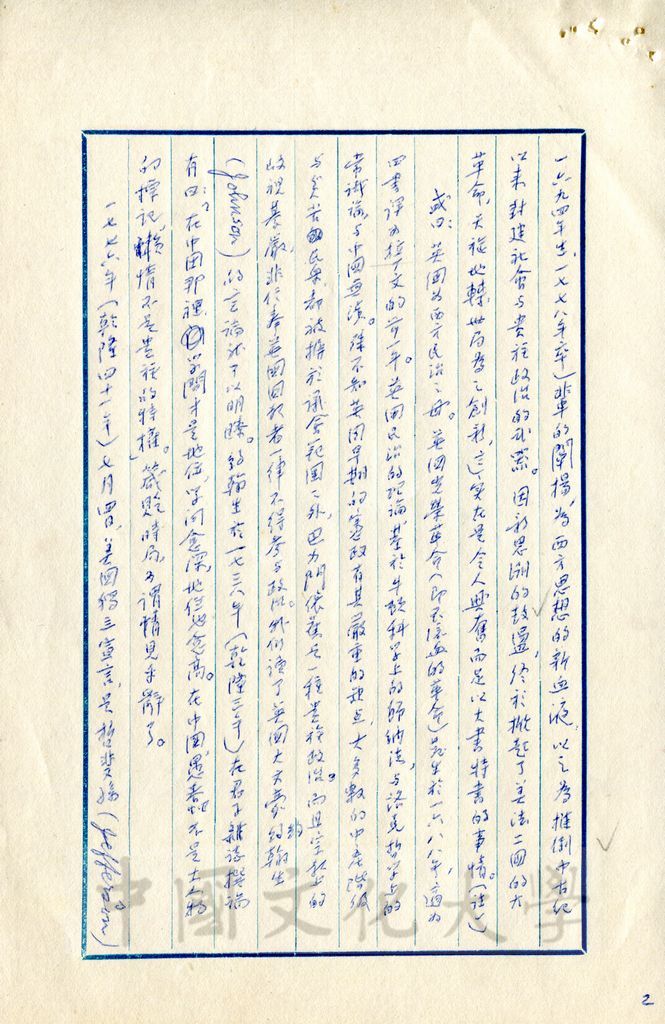 一六九四年生,一七七八年卒)輩的闡揚,為西方思想的新血液,以之為推倒中古紀
以來封建社會與貴族政治的武器。因新思潮的鼓盪,終於掀起了美法二國的大
革命,天旋地轉,世局為之創新,這實在是令人興奮而足以大書特書的事情。(註一)
或曰:英國為西方民治之母。英國光榮革命(即不流血的革命)發生於一六八八年,適為
四書譯為拉丁文的前一年。英國民治的理論,基於牛頓科學上的歸納法,與洛克哲學上的
常識論,與中國無涉。殊不知英國早期的憲政有其嚴重的缺点,大多數的中產階級
與貧苦民眾都被擯於議會範圍之外,巴力門依舊是一種貴族政治。而且宗教上的
歧視甚嚴,非信奉英國國教者一律不得參與政治。我們讀了英國大文豪約翰生
(Johnson)的言論,便可以明瞭。約翰生於一七三八年(乾隆三年)在君子雜誌撰稿
有曰:「在中國那裡,學問才是地位,學問愈深,地位也愈高。在中國,愚蠢不是大人物
的標記,懶惰不是貴族的特權。」箴貶時局,可謂情見乎辭了。
一七七六年(乾隆四十一年)七月四日,美國獨立宣言,是哲斐孫(Jefferson)
中國文化大學
2